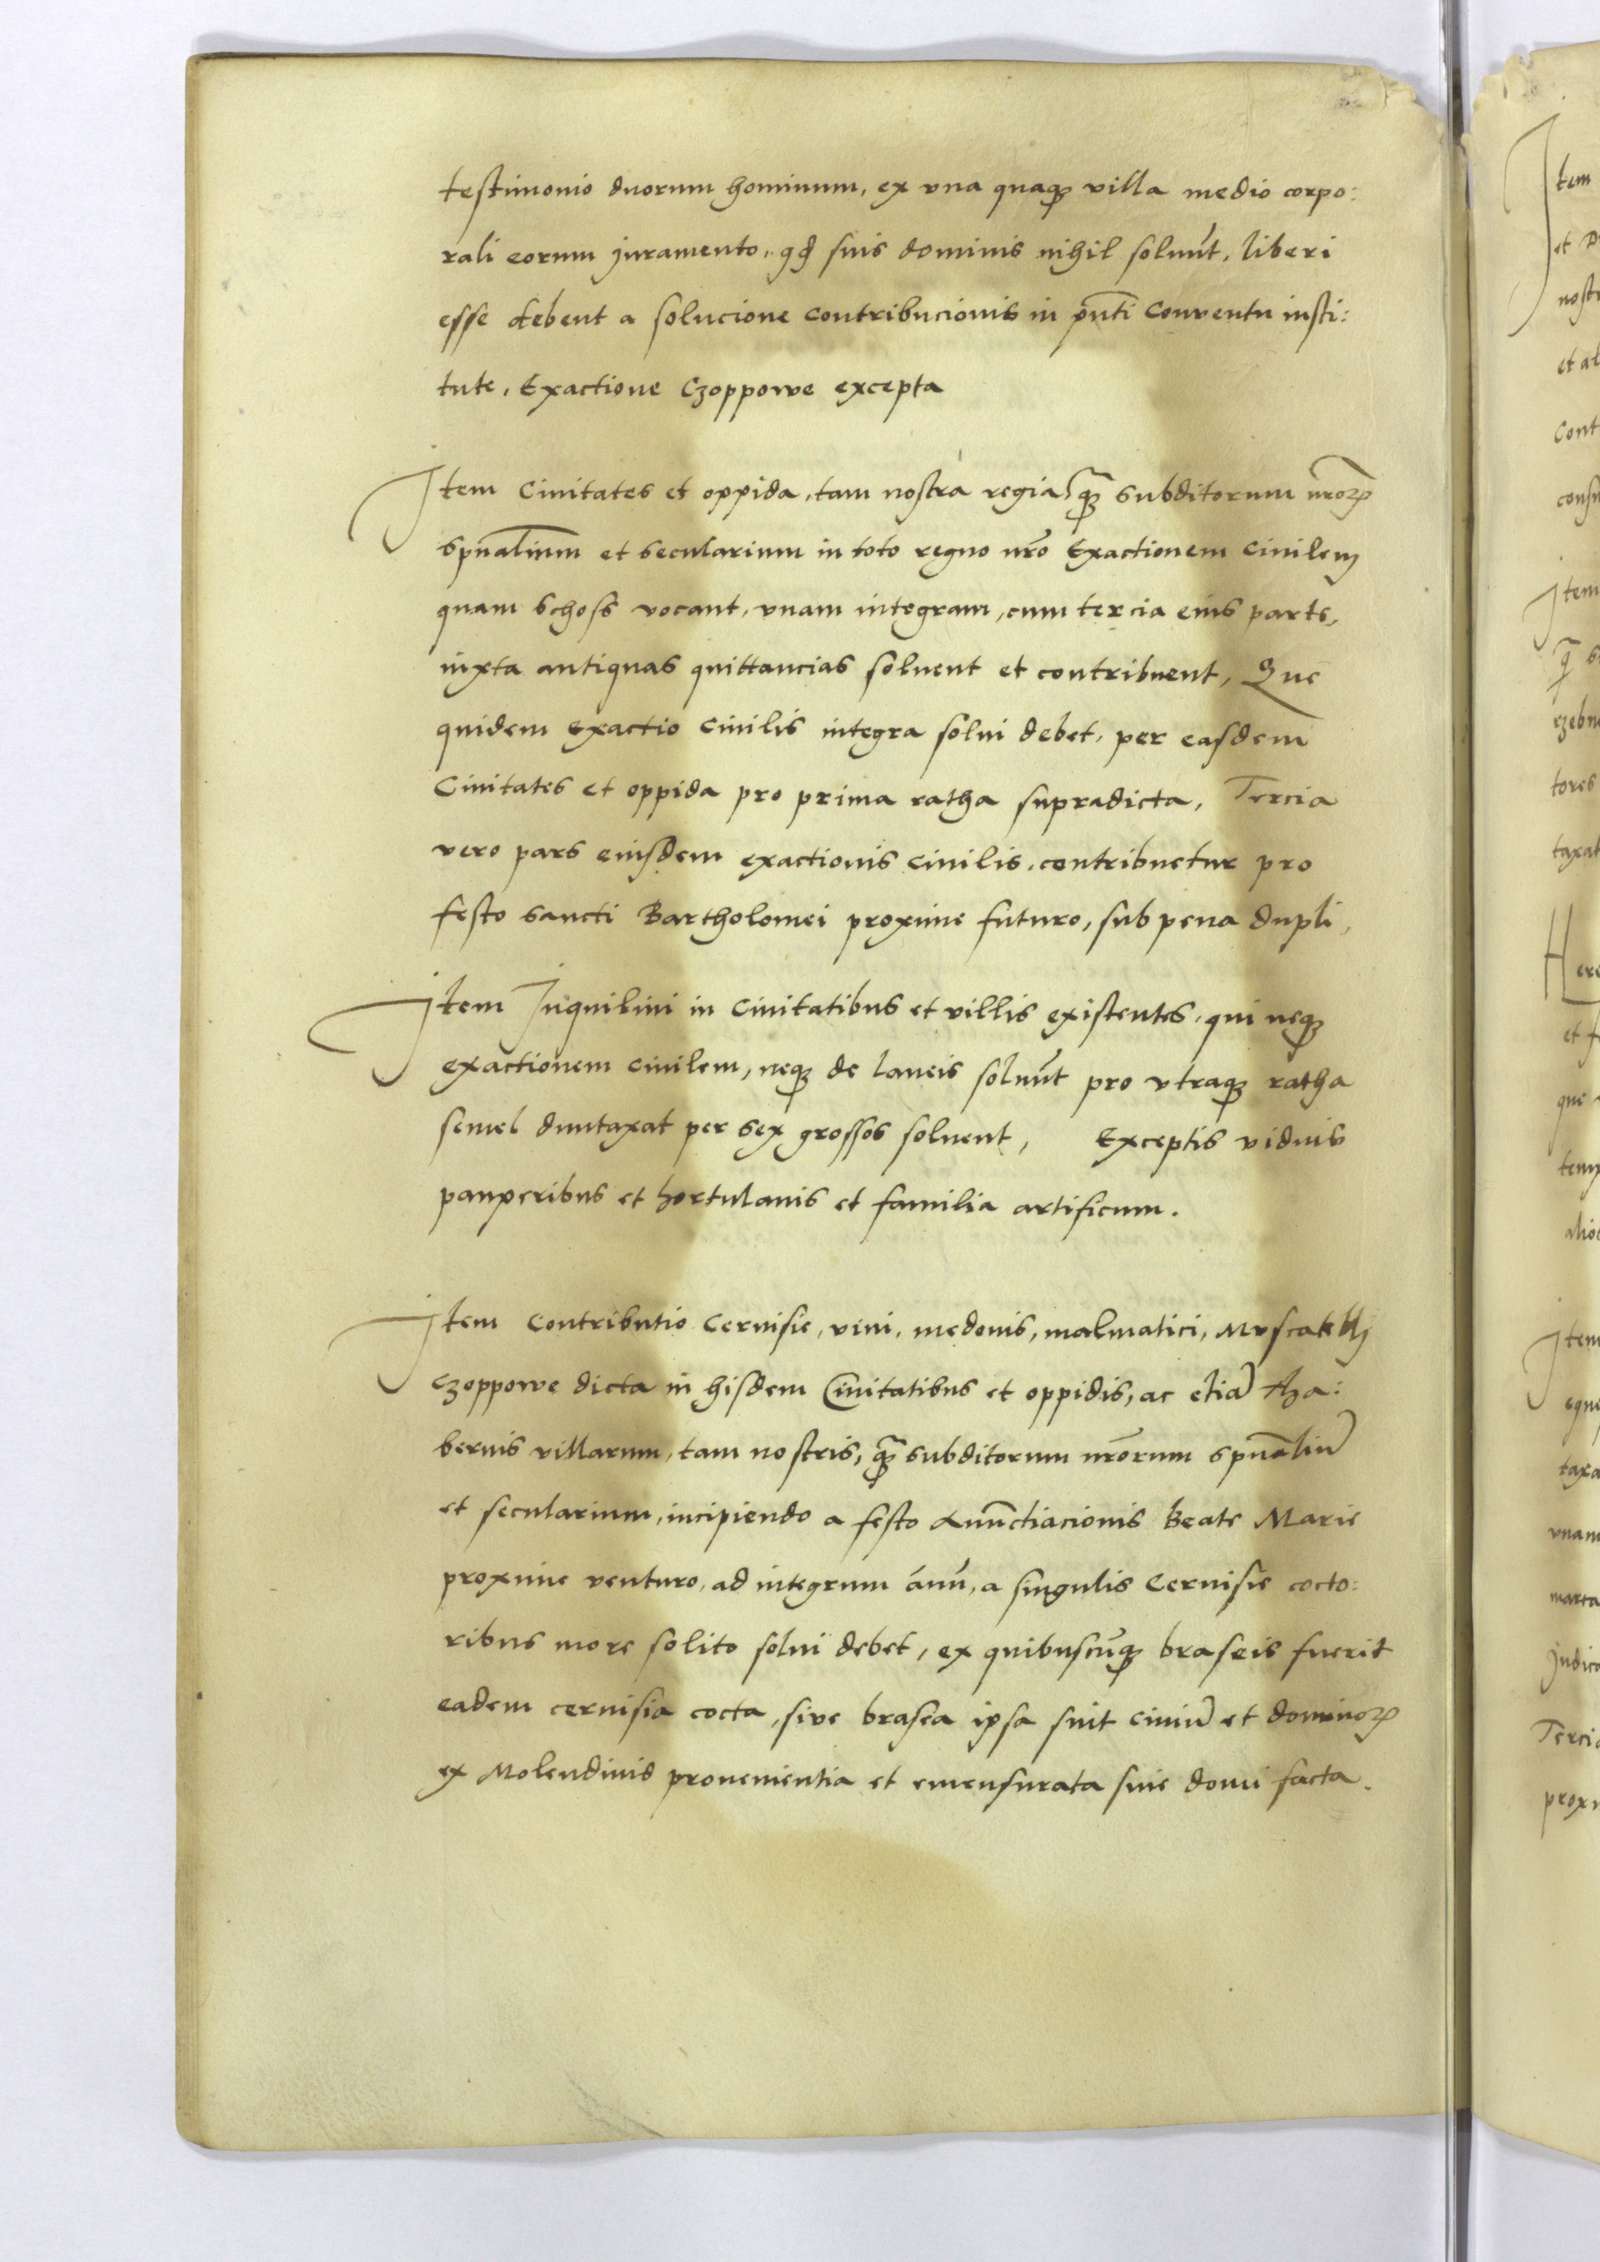 testimonio duorum hominum, ex vna quaqꝫ villa medio corpo:
rali eorum juramento, qđ suis dominis nihil soluūt, liberi
esse debent a solucione contribucionis in pn̄ti Conventu insti:
tute, Exactione Czoppowe excepta
Item Ciuitates et oppida, tam nostra regia, qꝫ̄ subditorum nr̄oꝝ
spūalium et secularium in toto regno nr̄o Exactionem Ciuilem
quam Schoss vocant, vnam integram, cum tercia eius parte,
iuxta antiquas quittancias soluent et contribuent, Que
quidem exactio Ciuilis integra solui debet, per easdem
Ciuitates et oppida pro prima ratha supradicta, Tercia
vero pars eiusdem exactionis ciuilis, contribuetur pro
festo sancti Bartholomei proxime futuro, sub pena dupli,
Item Inquilini in Ciuitatibus et villis existentes, qui neqꝫ
exactionem ciuilem, neqꝫ de laneis soluūt pro vtraqꝫ ratha
semel duntaxat per sex grossos soluent, Exceptis viduis
pauperibus et hortulanis et familia artificum.
Item Contributio Ceruisie, vini, medonis, malmatici, Mvscatelli
Czoppowe dicta in hisdem Ciuitatibus et oppidis, ac etiā tha:
bernis villarum, tam nostris, qꝫ̄ subditorum nr̄orum spūaliū
et secularium, incipiendo a festo Anūctiacionis Beate Marie
proxime venturo, ad integrum annū, a singulis Ceruisie cocto:
ribus more solito solui debet, ex quibuscūqꝫ braseis fuerit
eadem ceruisia cocta, sive brasea ipsa suit ciuiū et dominoꝝ
ex Molendinis prouenientia et emensurata siue domi facta.
Item
et
nostr
et al
Cont
consu
Item
qꝫ̄
rzebn
tores
taxat
Here
et f
que
temp
alio
Item
eque
taxa
vnam
marca
Judica
Tercia
proxi